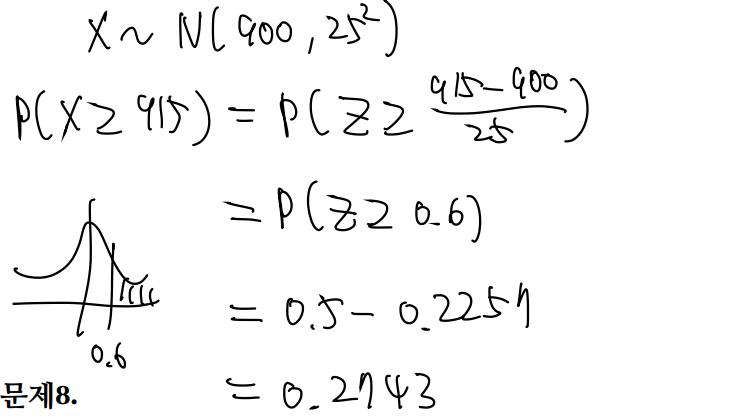 X ~ N(900, 25²)
P(X ≥ 915) = P(Z ≥ (915-900)/25)
= P(Z ≥ 0.6)
= 0.5 - 0.2257
0.6
= 0.2743
문제8.